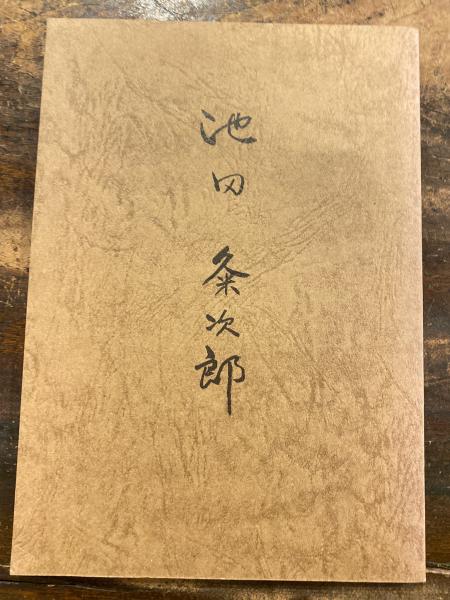 池田粂次郎